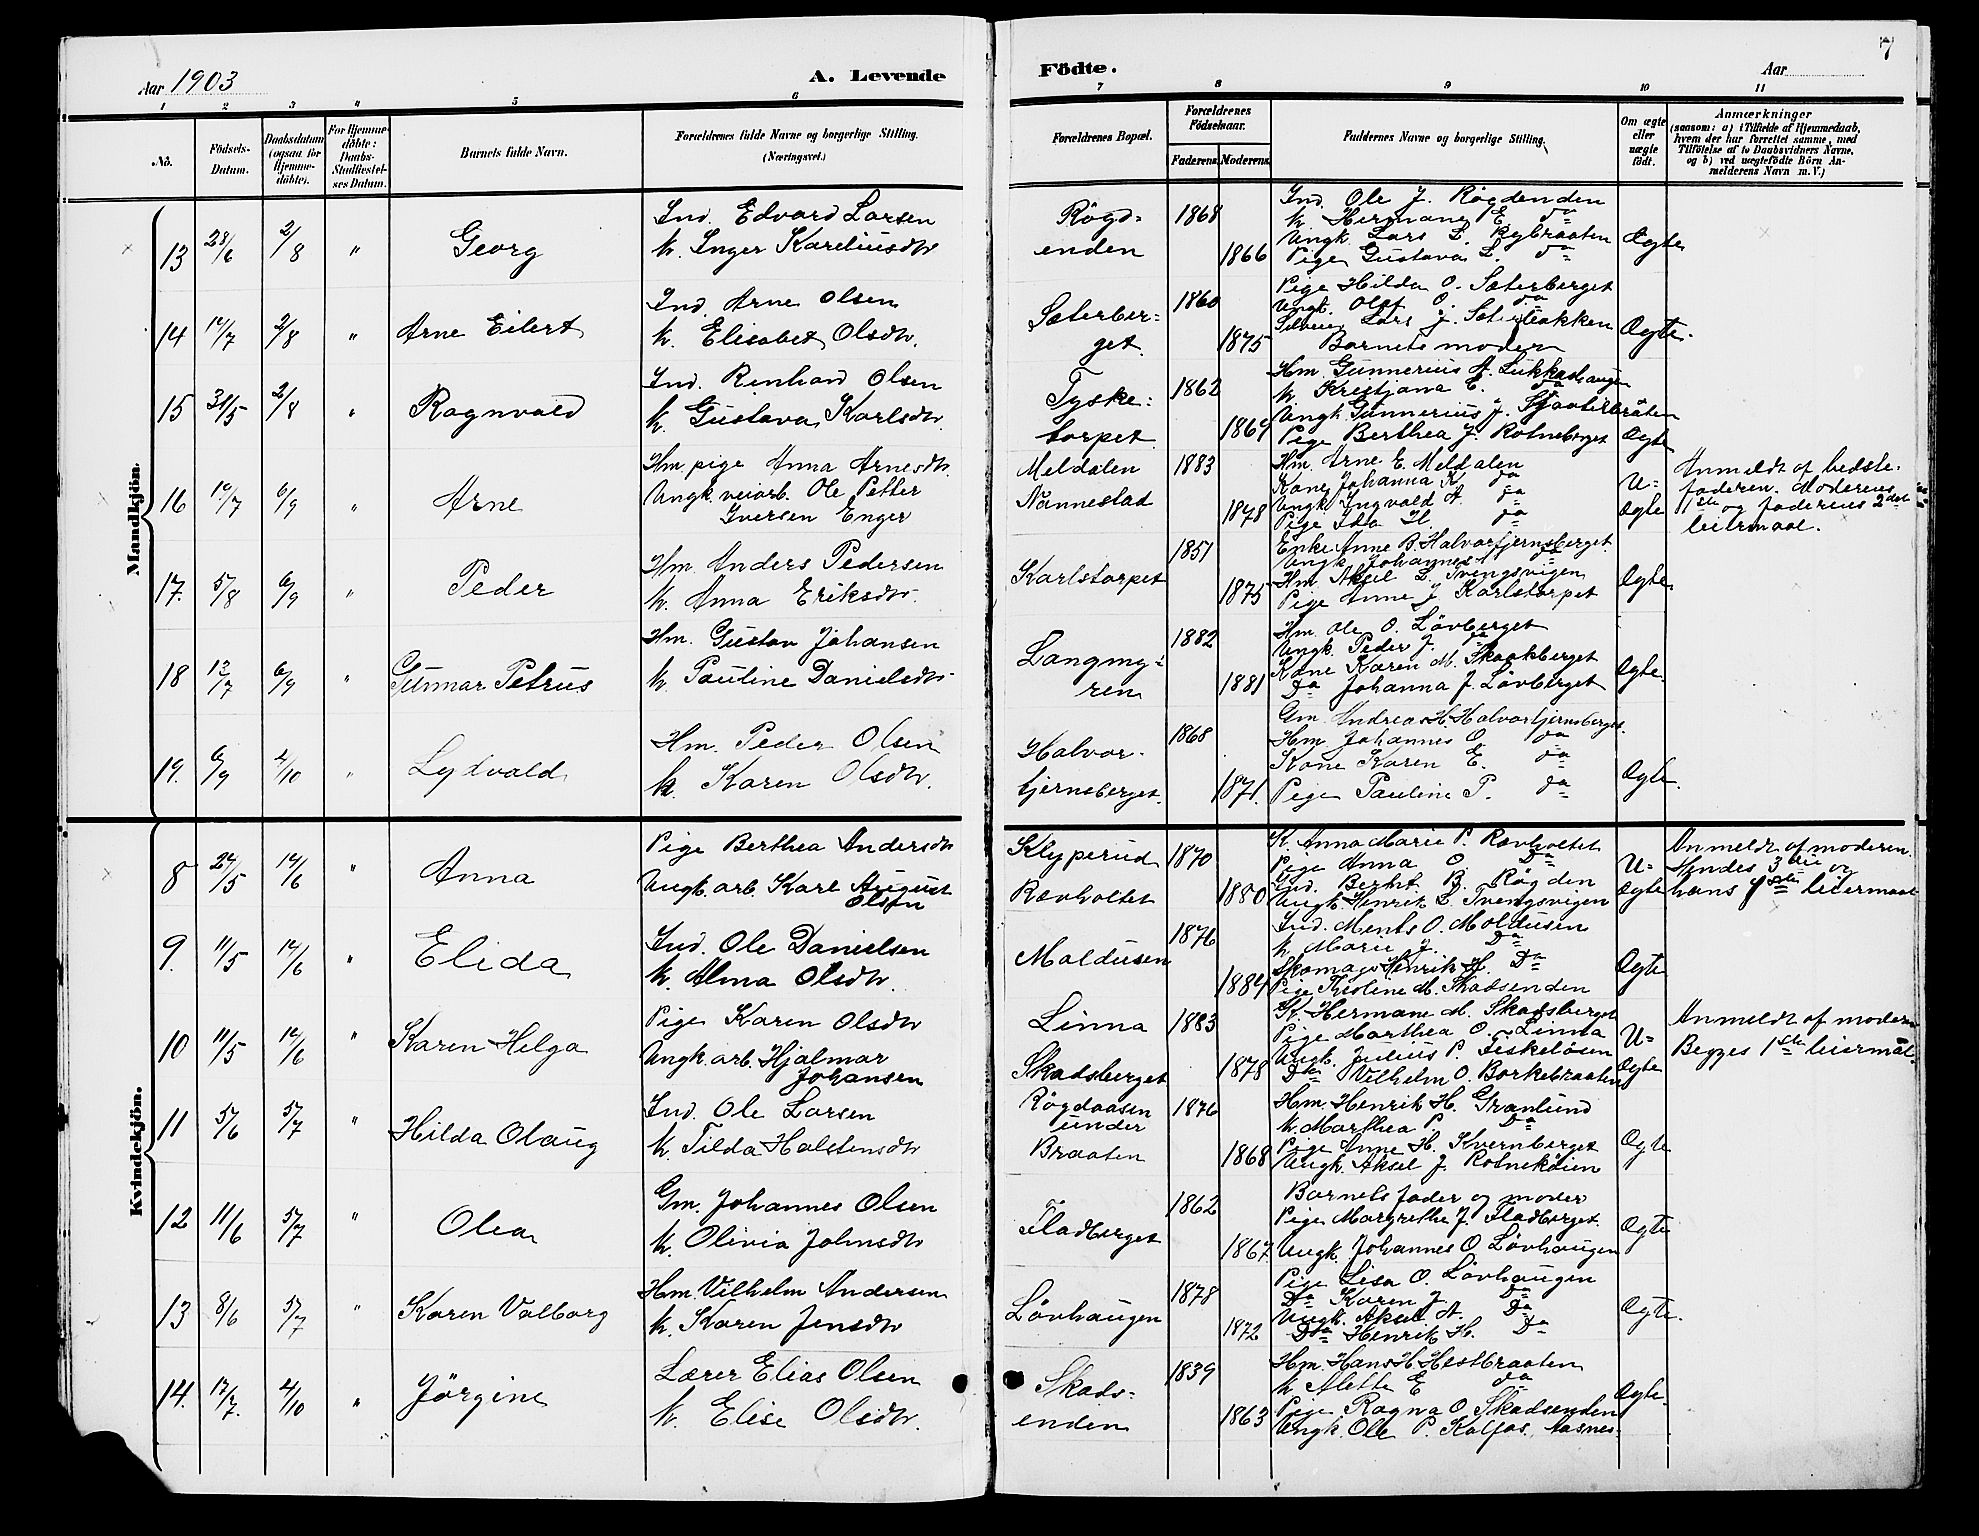 7
Aar 1903
A. Levende
Födte.
Aar
1 2 3 " 5 6 7 8 9 10 11
No.
Födsels-Datum.
Daabsdatum (ogsaa for Hjemmedöbte).
For Hjemmedöbte: Daabs-Stadfæstelses Datum.
Barnets fulde Navn.
Forældrenes fulde Navne og borgerlige Stilling. (Næringsvei.)
Forældrenes Bopæl.
Forældrenes Födselsaar.
Faderens. Moderens.
Faddernes Navne og borgerlige Stilling.
Om ægte eller uægte födt.
Anmærkninger
(saasom: a) i Tilfælde af Hjemmedaab, hvem der har forrettet samme, med Tilföielse af to Daabsvidners Navne, og b) ved uægtefödte Börn Anmelderens Navn m. V.)
Mandkjön.
13 28/6 2/8 " Georg
Ind. Edvard Larsen
k. Inger Kareliusdtr
Rögdenden
1868 1866
Ind. Ole J. Røgdenden
k. Hermane E. do
Ungk. Lars L. Bybraaten
Pige Gustava L. do
Ægte
14 14/7 2/8 " Arne Eilert
Ind. Arne Olsen
k. Elisabet Olsdtr.
Sæterberget.
1860 1875
Pige Hilda O. Sæterberget
Ungk. Olof O. do
Lars J. Sæterbakken
Barnets moder
Ægte.
15 31/5 2/8 " Ragnvald
Ind. Renhard Olsen
k. Gustava Karlsdtr.
Tysketorpet
1862 1864
Hm. Gunnerius A. Lukkashaugen
k. Krestjana E. do
Ungk. Gunnerius J.
Pige Berthea J. Rotneberget
Ægte
16 10/7 6/9 " Arne
Hm. pige Anna Arnesdtr.
Ungk. veiarb. Ole Petter
Iversen Enger
Meldalen
Nannestad
1883 1878
Hm. Arne E. Meldalen
Kone Johanna K. do
Ungk. Ingvald A. do
Pige Ida H. do
U-ægte
Anmeldt af bedstefaderen. Moderens
1ste og faderens 2det
leiermaal.
17. 5/8 6/9 " Peder
Hm. Anders Pedersen
k. Anna Eriksdtr.
Karlstorpet
1851 1875
Enke Anne B. Halvortjernsberget.
Ungk. Johannes do
Hm. Aksel L. Tvengsvigen
Pige Anne J. Karlstorpet
Ægte
18 13/7 6/9 " Gunnar Petrus
Hm. Gustav Johansen
k. Pauline Danielsdtr
Langmyren
1882 1881
Hm. Ole O. Lövberget
Ungk. Peder J. do
Kone Karen M. Skaakberget
Do Johanna J. Lövberget
Ægte.
19. 6/9 4/10 " Lydvald
Hm. Peder Olsen
k. Karen Olsdtr.
Halvortjernsberget.
1868 1871.
Gm. Andreas H. Halvortjernsberget.
Hm. Johannes O. do
Kone Karen E. do
Pige Pauline P. do
Ægte.
Kvindekjön.
8 24/5 14/6 " Anna
Pige Berthea Andersdtr
Ungk. arb. Karl August
Olsen
Klyperud
Rævholtet
1870 1880
K. Anna Marie P. Rævholtet
Pige Anna O. Do
Ind. Bernt B. Røgden
Ungk. Henrik L. Tvengsvigen
U-ægte
Anmeldt af moderen.
Hendes 3die og
hans 1ste leiermaal
9. 11/5 14/6 " Elida
Ind. Ole Danielsen
k. Alma Olsdtr.
Maldusen
1876 1884
Ind. Ments O. Moldusen
k. Marie J. Do
Skomager Henrik H. Do
Pige Theoline M. Skadsenden
Ægte
10 11/5 14/6 " Karen Helga
Pige Karen Olsdtr
Ungk. arb. Hjalmar
Johansen
Linna
Skadsberget
1883 1878
K. Hermane M. Skadsberget
Pige Marthea O. Linna
Ungk. Julius P. Fiskelösen
Do Vilhelm O. Borkebraaten
U-ægte
Anmeldt af moderen
Begges 1ste leiermål.
11 5/6 5/7 " Hilda Olaug
Ind. Ole Larsen
k. Tilda Halstensdtr
Røgdaasen
under
Braaten
1876 1868
Hm. Henrik H. Granlund
k. Marthea P. Do
Pige Anne H. Kvernberget
Ungk. Aksel J. Rotnekøien
Ægte
12 11/6 5/7 " Olea
Gm. Johannes Olsen
k. Olivia Johnsdtr
Fladberget
1862 1867.
Barnets fader og moder
Pige Margrethe J. Fladberget.
Ungk. Johannes O. Lövhaugen
Ægte
13 8/6 5/7 " Karen Valborg
Hm. Vilhelm Andersen
k. Karen Jensdtr
Lövhaugen
1878 1872
Pige Lisa O. Lövhaugen
Do Karen J. Do
Ungk. Aksel A. Do
Do Henrik H. Do
Ægte.
14. 17/7. 4/10 " Jörgine
Lærer Elias Olsen
k. Elise Olsdtr.
Skadsenden
1839 1863
Hm. Hans H. Hestbraaten
k. Alette E. do
Pige Ragna O. Skadsenden
Ungk. Ole P. Kalfos, Aasnes.
Ægte.